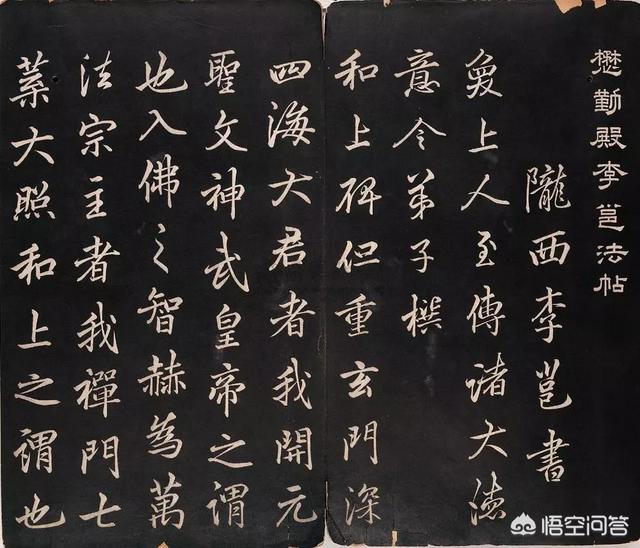 懋勤殿李邕法帖
隴西李邕書
奐上人至傳諸大德
意令弟子撰
和上碑但重玄門深
四海大君者我開元
聖文神武皇帝之謂
也入佛之智赫為萬
法宗主者我禪門七
葉大照和上之謂也
悟空问答